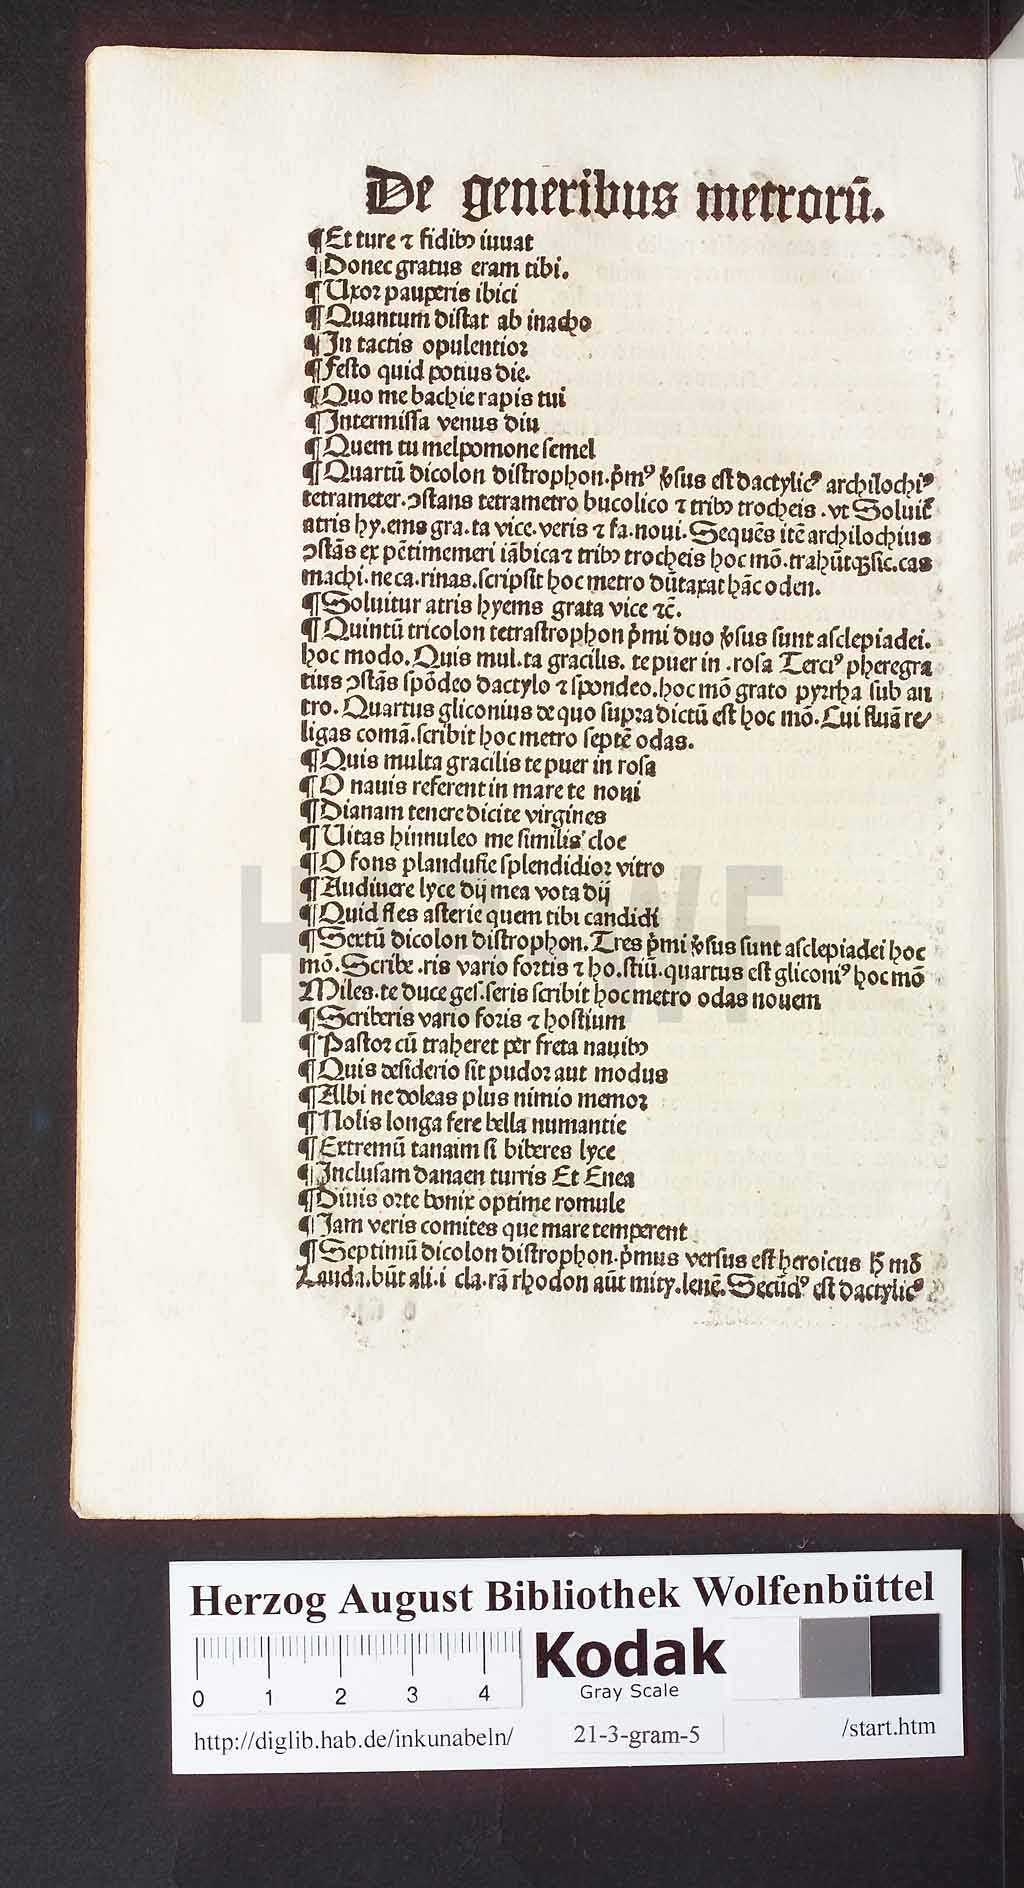 De generibus metrorū.
¶Et ture ⁊ fidibꝫ iuuat
¶Donec gratus eram tibi.
¶Uxoꝛ pauperis ibici
¶Quantum distat ab inacho
¶In tactis opulentioꝛ
¶Festo quid potius die.
¶Quo me bachie rapis tui
¶Intermissa venus diu
¶Quem tu melpomone semel
¶Quartū dicolon distrophon.p̄mꝰ v̓sus est dactylicꝰ archilochiꝰ
tetrameter.ɔstans tetrametro bucolico ⁊ tribꝫ trocheis.vt Soluit̄
atris hy.ems gra.ta vice.veris ⁊ fa.noui.Sequēs itē archilochius
ɔstās ex pētimemeri iābica ⁊ tribꝫ trocheis hoc mō.trahūtqꝫ sic.cas
machi.ne ca.rinas.scripsit hoc metro dūtaxat hāc oden.
¶Soluitur atris hyems grata vice ⁊c̄.
¶Quintū tricolon tetrastrophon p̄mi duo v̓sus sunt asclepiadei.
hoc modo.Quis mul.ta gracilis.te puer in .rosa Terciꝰ pheregra
tius ɔstās spōdeo dactylo ⁊ spondeo.hoc mō grato pyrrha sub an
tro.Quartus gliconius de quo supꝛa dictū est hoc mō.Cui fluā re/
ligas comā.scribit hoc metro septē odas.
¶Quis multa gracilis te puer in rosa
¶O nauis referent in mare te noui
¶Dianam tenere dicite virgines
¶Uitas hinnuleo me similis cloe
¶O fons plandusie splendidioꝛ vitro
¶Audiuere lyce dij mea vota dij
¶Quid fles asterie quem tibi candidi
¶Sextū dicolon distrophon.Tres p̄mi v̓sus sunt asclepiadei hoc
mō.Scribe .ris vario foꝛtis ⁊ ho.stiū.quartus est gliconiꝰ hoc mō
Miles.te duce ges.seris scribit hoc metro odas nouem
¶Scriberis vario foꝛis ⁊ hostium
¶Pastoꝛ cū traheret per freta nauibꝫ
¶Quis desiderio sit pudoꝛ aut modus
¶Albi ne doleas plus nimio memoꝛ
¶Nolis longa fere bella numantie
¶Extremū tanaim si biberes lyce
¶Inclusam danaen turris Et Enea
¶Diuis oꝛte bonix optime romule
¶Jam veris comites que mare temperent
¶Septimū dicolon distrophon.p̄mus versus est heroicus h̄ mō
Lauda.būt ali.i cla.rā rhodon aūt mity.lenē.Secūdꝰ est dactylicꝰ
HAB WF
Herzog August Bibliothek Wolfenbüttel
Kodak
Gray Scale
0 1 2 3 4
http://diglib.hab.de/inkunabeln/
21-3-gram-5
/start.htm